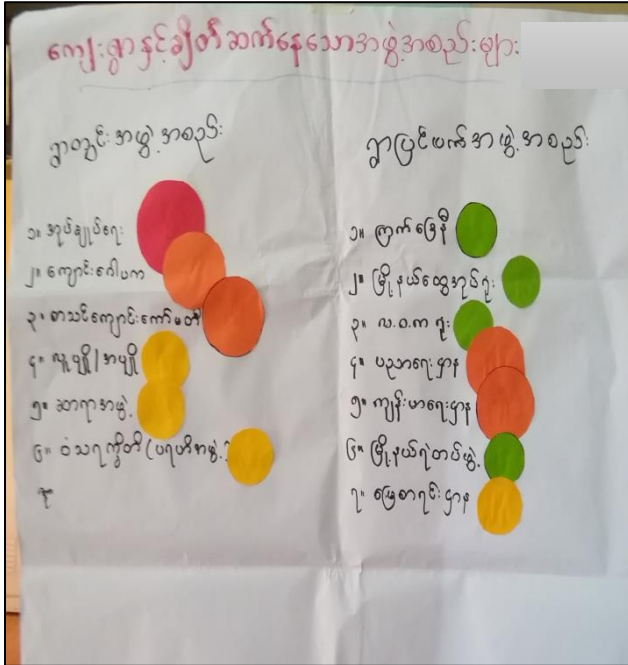 ကျေးရွာနှင့်ချိတ်ဆက်နေသောအဖွဲ့အစည်းများ
ရွာတွင်းအဖွဲ့အစည်း
၁။ အုပ်ချုပ်ရေး
၂။ ကျောင်းဂေါပက
၃။ စာသင်ကျောင်းကော်မတီ
၄။ လူပျို/အပျို
၅။ ဆာရာအဖွဲ့
၆။ ဝံသရက္ခိတ (ပရဟိအဖွဲ့)
ရွာပြင်ပက်အဖွဲ့အစည်း
၁။ ကြက်ခြေနီ
၂။ မြို့နယ်ထွေအုပ်ရုံး
၃။ လ.ဝ.က ရုံး
၄။ ပညာရေးဌာန
၅။ ကျန်းမာရေးဌာန
၆။ မြို့နယ်ရဲတပ်ဖွဲ့
၇။ မြေစာရင်းဌာန